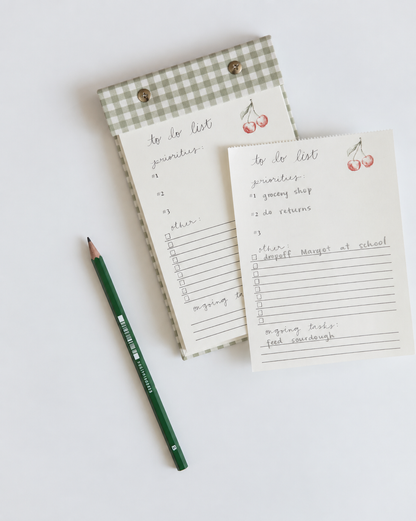 to do list
priorities:
#1
#2
#3
other:
ongoing
to do list
priorities:
#1 grocery shop
#2 do returns
#3
other:
dropoff Margot at school
ongoing tasks:
feed sourdough